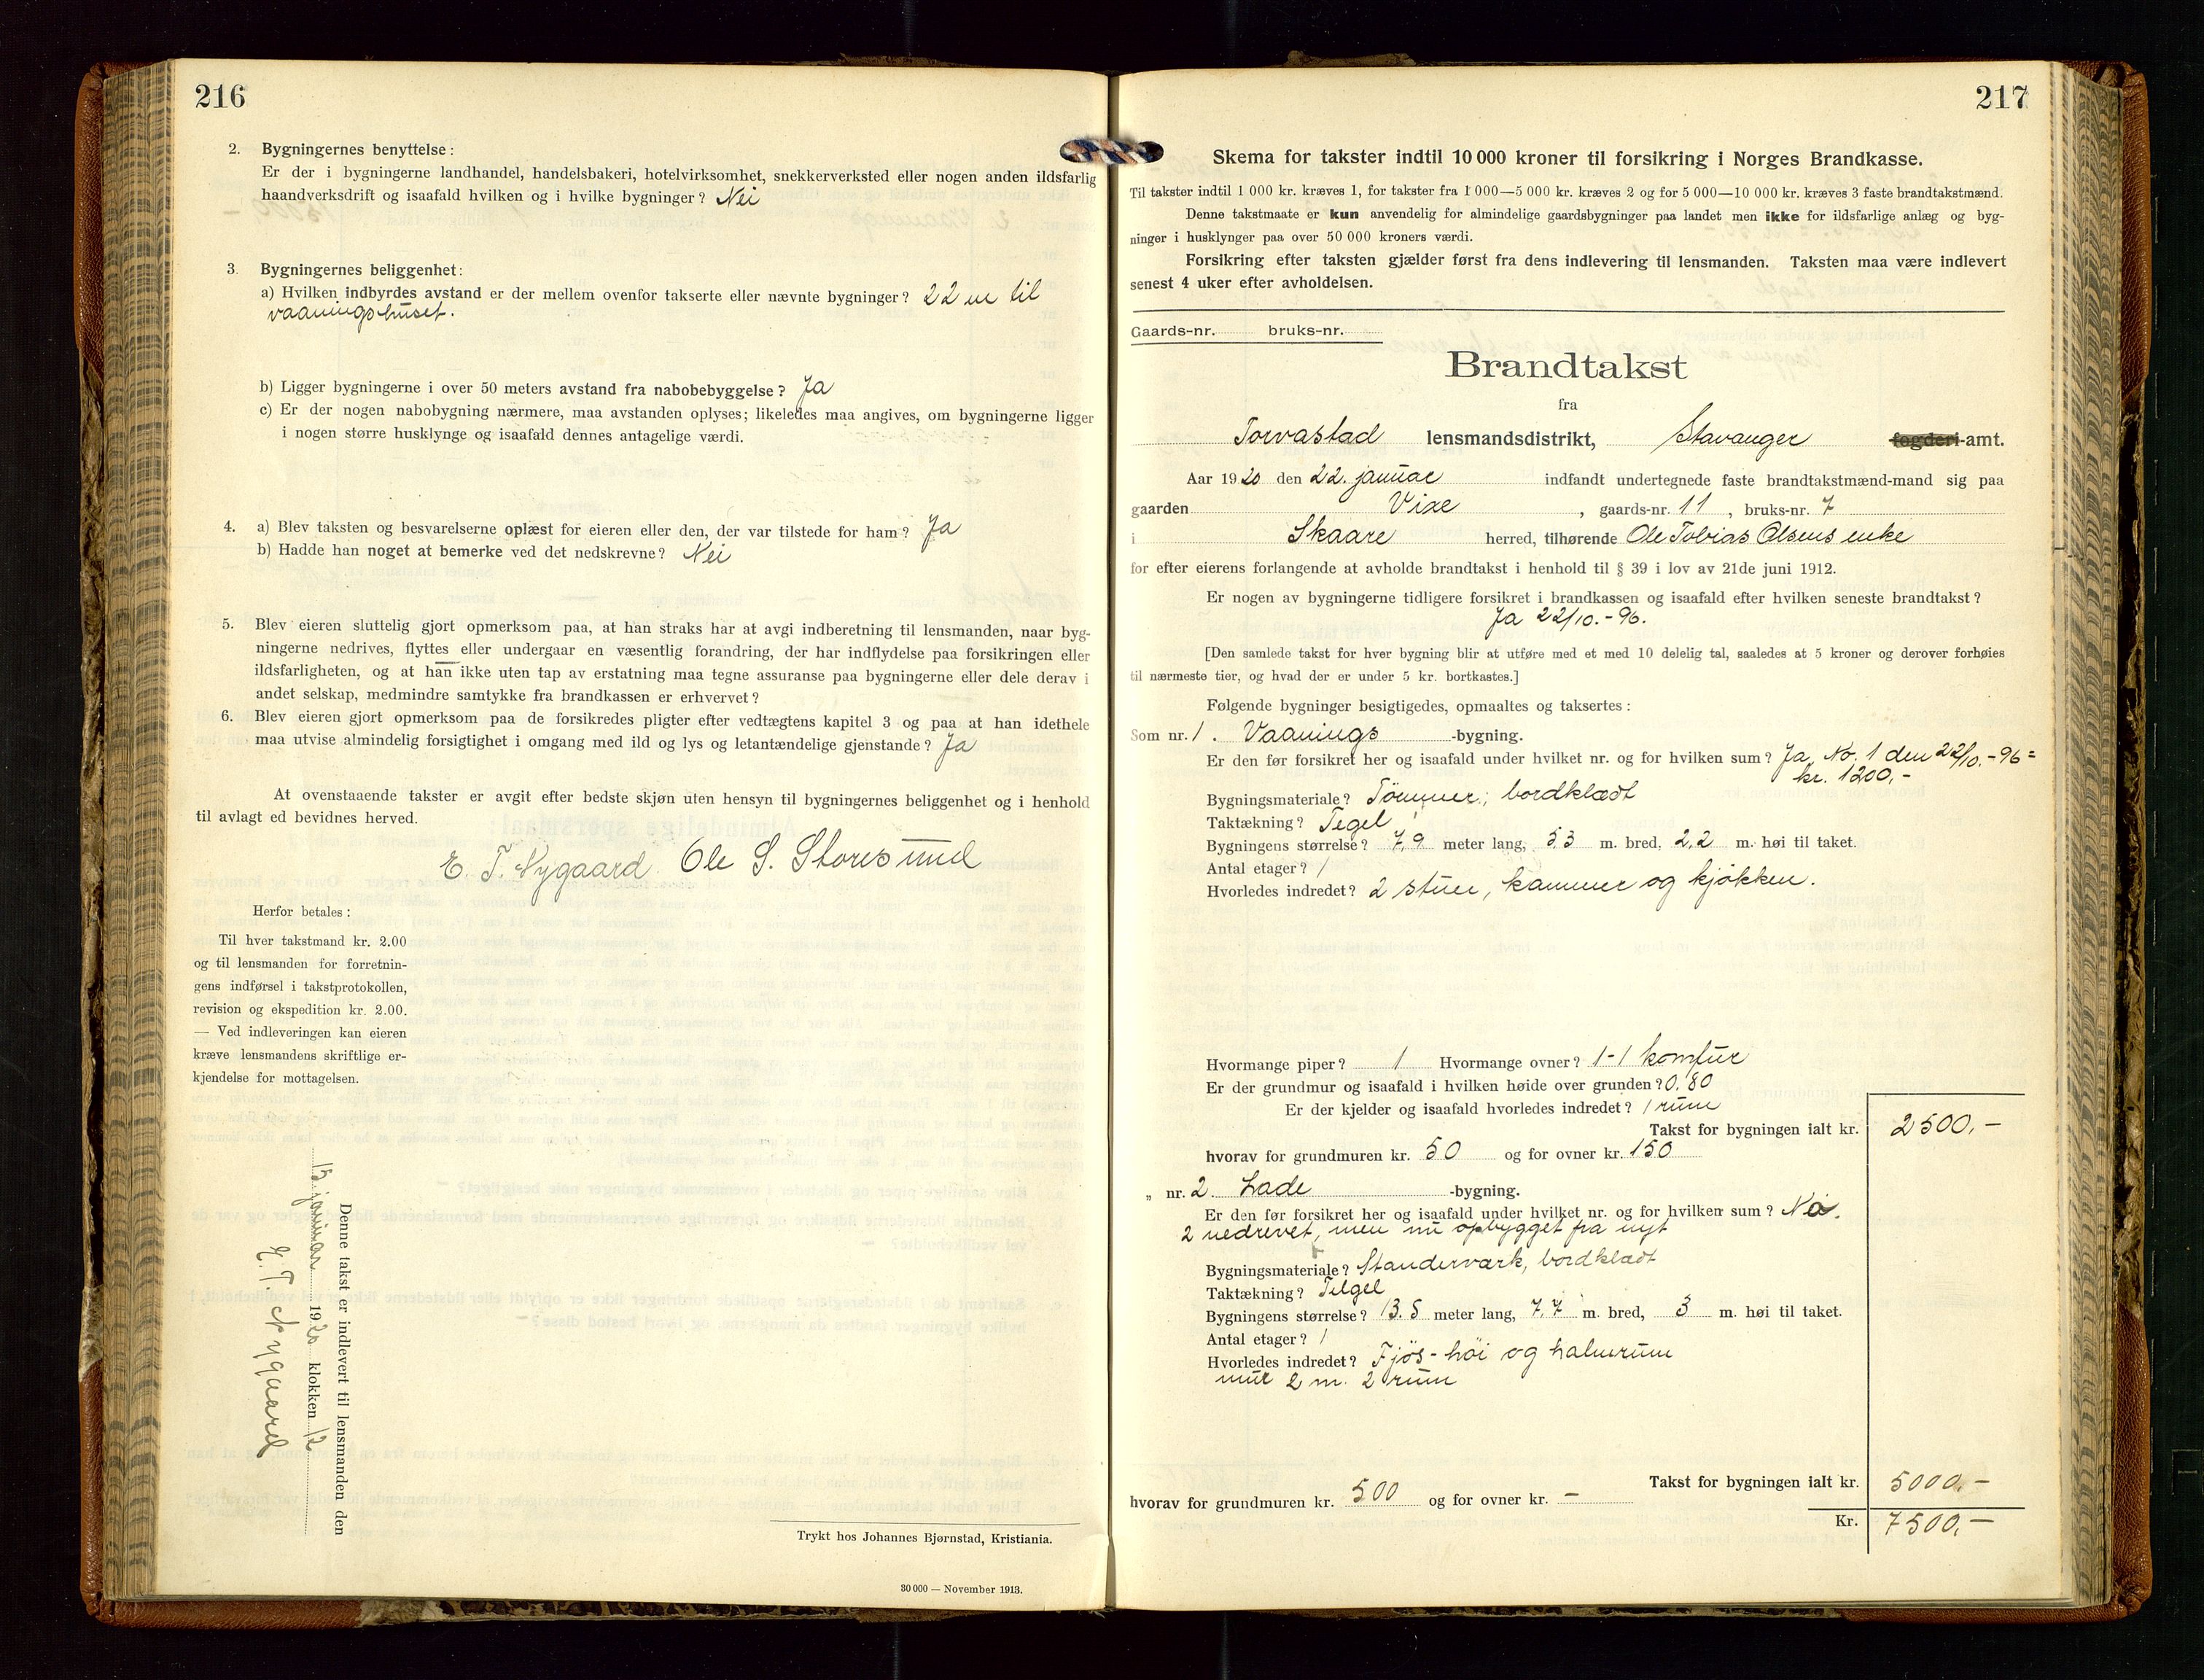 216
2. Bygningernes benyttelse:
Er der i bygningerne landhandel, handelsbakeri, hotelvirksomhet, snekkerverksted eller nogen anden ildsfarlig
haandverksdrift og isaafald hvilken og i hvilke bygninger? Nei
3. Bygningernes beliggenhet:
a) Hvilken indbyrdes avstand er der mellem ovenfor takserte eller nævnte bygninger? 22 m til
vaaningshuset.
b) Ligger bygningerne i over 50 meters avstand fra nabobebyggelse? Ja
c) Er der nogen nabobygning nærmere, maa avstanden oplyses; likeledes maa angives, om bygningerne ligger
i nogen større husklynge og isaafald dennes antagelige værdi.
4. a) Blev taksten og besvarelserne oplæst for eieren eller den, der var tilstede for ham? Ja
b) Hadde han noget at bemerke ved det nedskrevne? Nei
5. Blev eieren sluttelig gjort opmerksom paa, at han straks har at avgi indberetning til lensmanden, naar byg-
ningerne nedrives, flyttes eller undergaar en væsentlig forandring, der har indflydelse paa forsikringen eller
ildsfarligheten, og at han ikke uten tap av erstatning maa tegne assuranse paa bygningerne eller dele derav i
andet selskap, medmindre samtykke fra brandkassen er erhvervet?
6. Blev eieren gjort opmerksom paa de forsikredes pligter efter vedtægtens kapitel 3 og paa at han idethele
maa utvise almindelig forsigtighet i omgang med ild og lys og letantændelige gjenstande? Ja
At ovenstaaende takster er avgit efter bedste skjøn uten hensyn til bygningernes beliggenhet og i henhold
til avlagt ed bevidnes herved.
E. T. Nygaard. Ole S. Storesund
Herfor betales:
Til hver takstmand kr. 2.00
og til lensmanden for forretnin-
gens indførsel i takstprotokollen,
revision og ekspedition kr. 2.00.
— Ved indleveringen kan eieren
kræve lensmandens skriftlige er-
kjendelse for mottagelsen.
Denne takst er indlevert til lensmanden den
15 januar 1920 klokken 12
E. T. Nygaard
Trykt hos Johannes Bjørnstad, Kristiania.
30 000 — November 1913.
217
Skema for takster indtil 10 000 kroner til forsikring i Norges Brandkasse.
Til takster indtil 1 000 kr. kræves 1, for takster fra 1 000—5 000 kr. kræves 2 og for 5 000—10 000 kr. kræves 3 faste brandtakstmænd.
Denne takstmaate er kun anvendelig for almindelige gaardsbygninger paa landet men ikke for ildsfarlige anlæg og byg-
ninger i husklynger paa over 50 000 kroners værdi.
Forsikring efter taksten gjælder først fra dens indlevering til lensmanden. Taksten maa være indlevert
senest 4 uker efter avholdelsen.
Gaards-nr. bruks-nr.
Brandtakst
fra
Torvastad lensmandsdistrikt, Stavanger fogderi-amt.
Aar 1920 den 22. januar indfandt undertegnede faste brandtakstmænd-mand sig paa
gaarden Vixe, gaards-nr. 11, bruks-nr. 7
i Skaare herred, tilhørende Ole Tobias Olsens enke
for efter eierens forlangende at avholde brandtakst i henhold til § 39 i lov av 21de juni 1912.
Er nogen av bygningerne tidligere forsikret i brandkassen og isaafald efter hvilken seneste brandtakst?
Ja 22/10.-96.
[Den samlede takst for hver bygning blir at utføre med et med 10 delelig tal, saaledes at 5 kroner og derover forhøies
til nærmeste tier, og hvad der er under 5 kr. bortkastes.]
Følgende bygninger besigtigedes, opmaaltes og taksertes:
Som nr. 1. Vaanings -bygning.
Er den før forsikret her og isaafald under hvilket nr. og for hvilken sum? Ja, No. 1 den 22/10.-96 =
kr. 1200,-
Bygningsmateriale? Tömmer; bordklædt
Taktækning? Tegel
Bygningens størrelse? 7,9 meter lang, 5,3 m. bred, 2,2 m. høi til taket.
Antal etager? 1
Hvorledes indredet? 2 stuer, kammer og kjökken.
Hvormange piper? 1 Hvormange ovner? 1-1 komfur
Er der grundmur og isaafald i hvilken høide over grunden? 0.80
Er der kjelder og isaafald hvorledes indredet? 1 rum
Takst for bygningen ialt kr. 2500,-
hvorav for grundmuren kr. 50 og for ovner kr. 150
„ nr. 2. Lade -bygning.
Er den før forsikret her og isaafald under hvilket nr. og for hvilken sum? No.
2 nedrevet, men nu opbygget fra nyt
Bygningsmateriale? Standerværk, bordklædt
Taktækning? Tilgel
Bygningens størrelse? 13.5 meter lang, 7,7 m. bred, 3 m. høi til taket.
Antal etager? 1
Hvorledes indredet? Fjös-höi og halmrum
mur 2 m. 2 rum
Takst for bygningen ialt kr. 5000,-
hvorav for grundmuren kr. 500 og for ovner kr. -
Kr. 7500,-